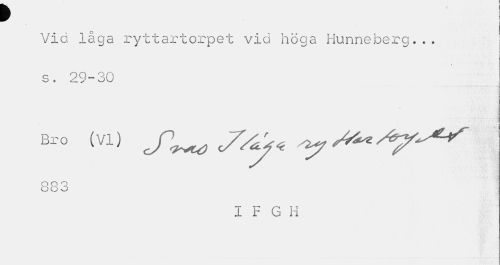 Vid låga ryttartorpet vid höga Hunneberg...
s. 29-30
Bro (Vl) I låga ryttartorpet
883
I F G H